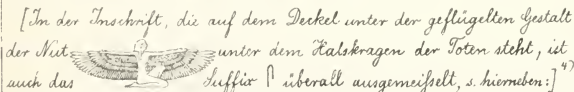 [In der Inschrift, die auf dem Deckel unter der geflügelten Gestalt
der Nut unter dem Halskragen der Toten steht, ist
auch das Suffix 𓋴 überall ausgemeißelt, s. hierneben:] 4)